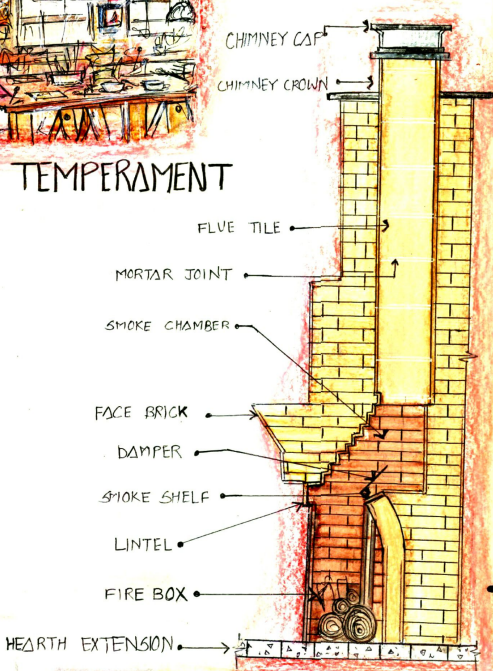 CHIMNEY CAP
CHIMNEY CROWN
TEMPERAMENT
FLUE TILE
MORTAR JOINT
SMOKE CHAMBER
FACE BRICK
DAMPER
SMOKE SHELF
LINTEL
FIRE BOX
HEARTH EXTENSION